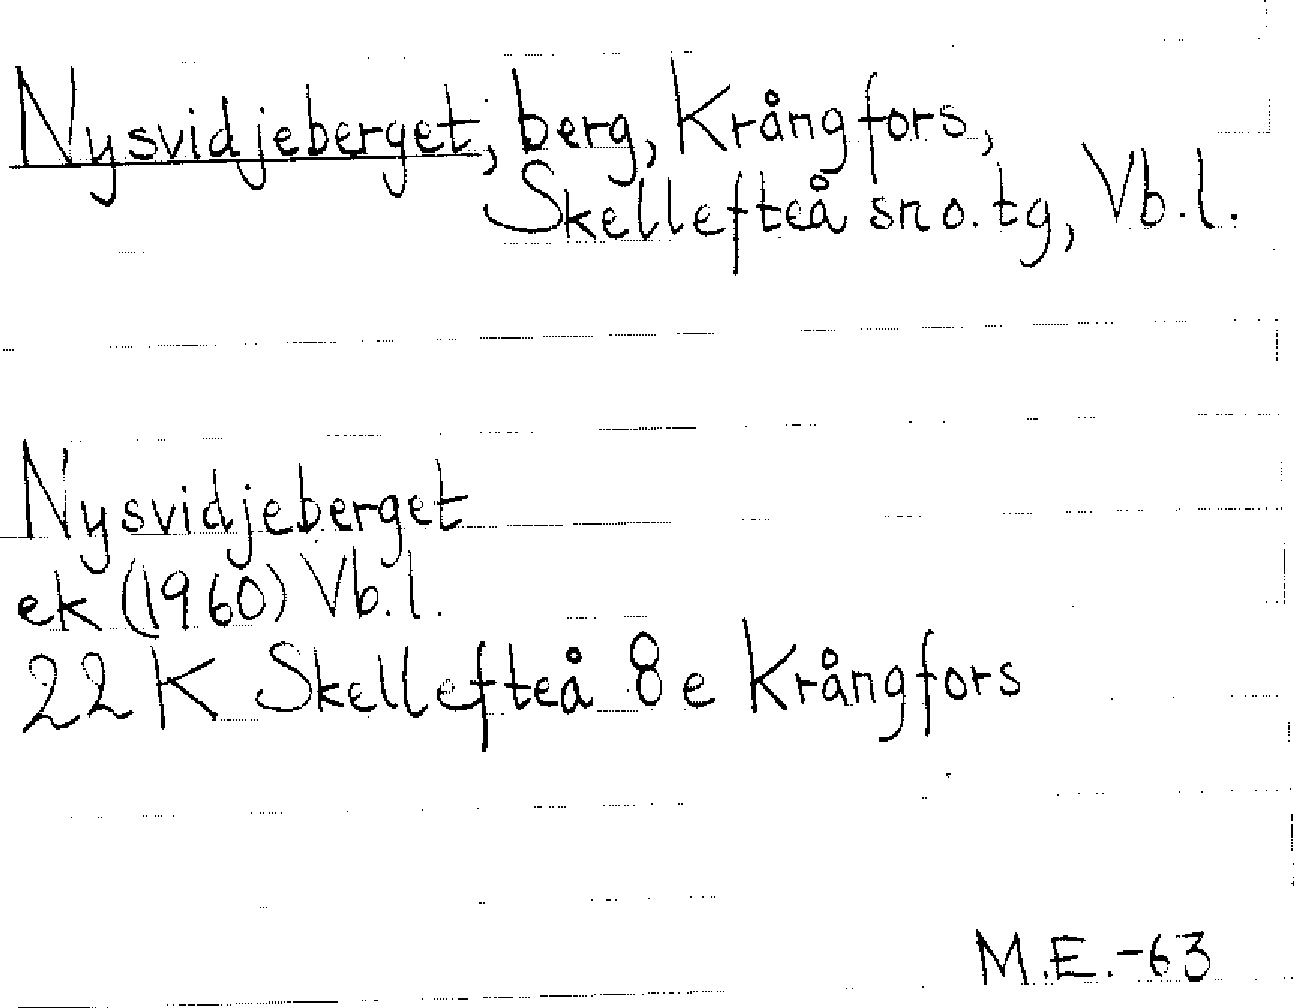 Nysvidjeberget, berg, Krångfors,
Skellefteå sn o. tg, Vb.l.
Nysvidjeberget
ek (1960) Vb.l.
22 K Skellefteå 8 e Krångfors
M.E.-63